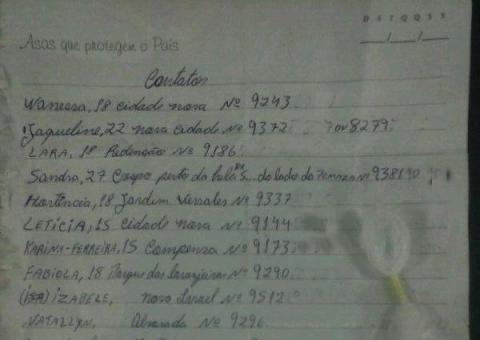 D S T Q Q S S
__/__/__
Asas que protegem o País
Contatos
Wanessa, 18 cidade nova Nº 9243
Jaqueline, 22 nova cidade Nº 9372 ou 8279
LARA, 18 Redenção Nº 9186
Sandra, 27 perto da do lado da Nº 9381
Hortência, 18 Jardim Nº 9337
LETÍCIA, 15 cidade nova Nº 9144
KARINA-FERREIRA, 15 Compensa Nº 9173
FABIOLA, 18 Parque das laranjeiras Nº 9290
IZABELE, novo Israel Nº 9512
NATALLYN, Alvorada Nº 9296